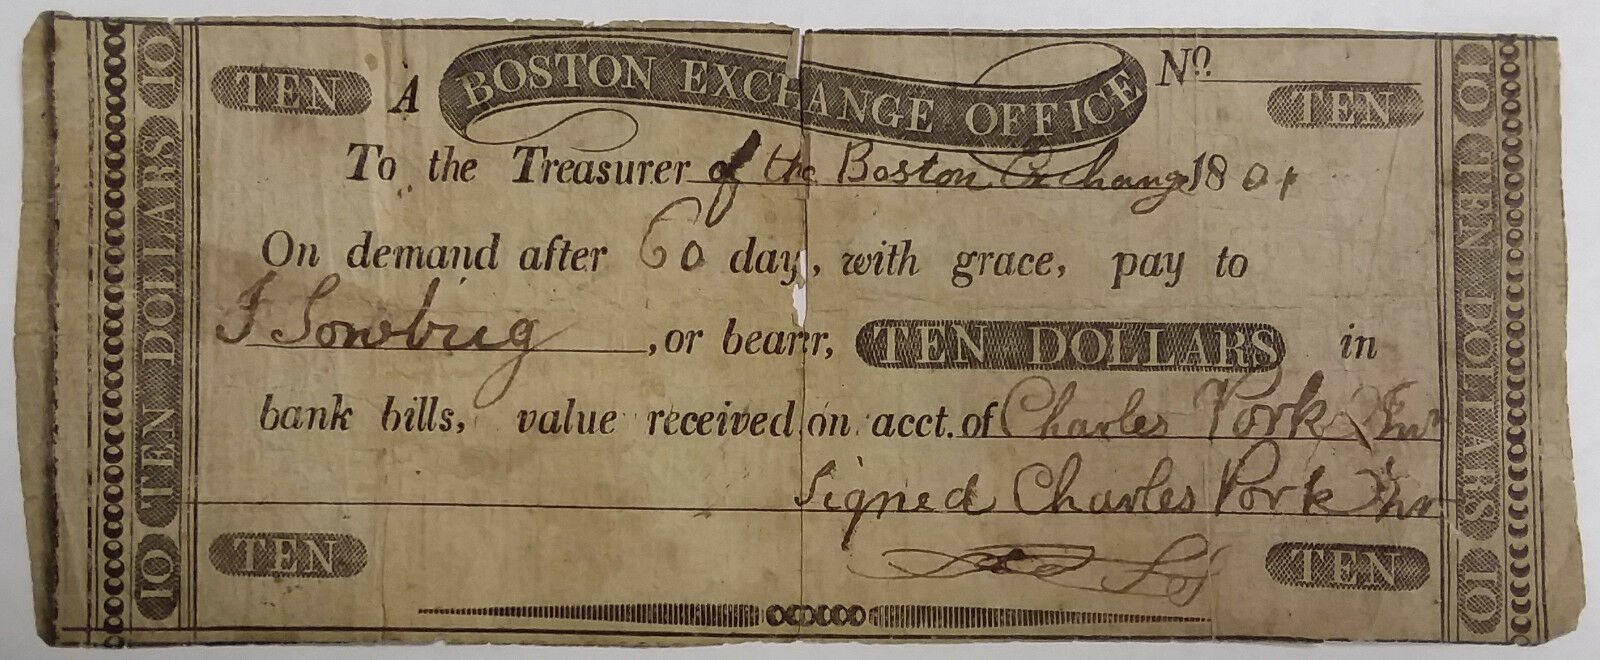 TEN A BOSTON EXCHANGE OFFICE Nº. TEN
To the Treasurer of the Boston Exchange 1801
On demand after 60 day, with grace, pay to
J Sowbug, or bearer, TEN DOLLARS in
bank bills, value received on acct. of Charles Pork
Signed Charles Pork
TEN TEN
10 TEN DOLLARS 10
10 TEN DOLLARS 10